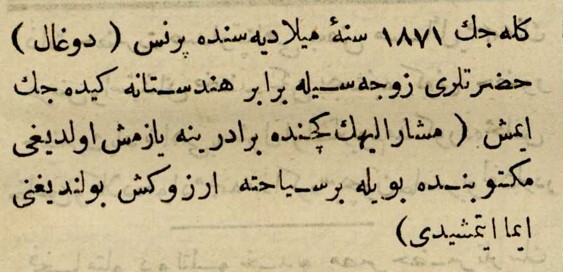 كله جك ١٨٧١ سنۀ ميلاديه سنده پرنس ( دوغال )
حضرتلرى زوجه سيله برابر هندستانه كيده جك
ايمش ( مشاراليهك كچنده برادرينه يازمش اولديغى
مكتوبنده بويله بر سياحته ارزوكش بولنديغنى
ايما ايتمشيدى)